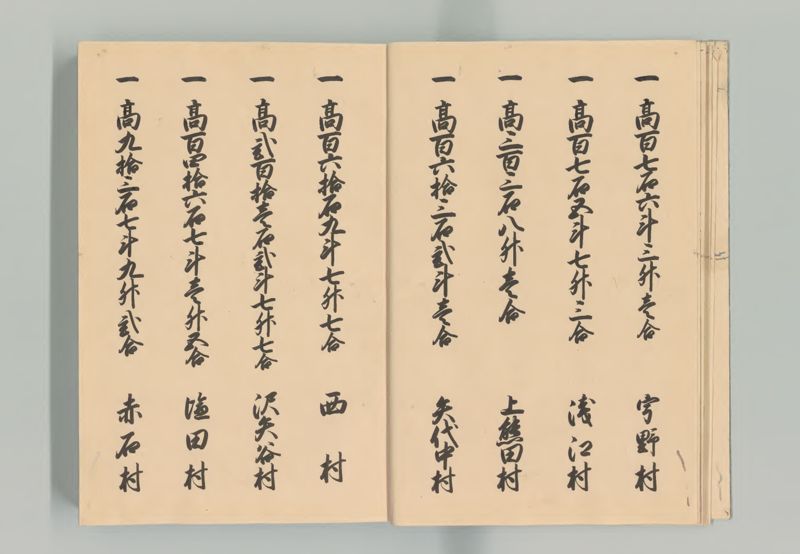 一 高百七石六斗三升壱合 宇野村
一 高百七石五斗七升三合 浅江村
一 高三百三石八升壱合 上熊田村
一 高百六拾三石弐斗壱合 矢代中村
一 高百六拾石九斗七升七合 西村
一 高弐百拾壱石弐斗七升七合 沢矢谷村
一 高百四拾六石七斗壱升五合 塩田村
一 高九拾三石七斗九升弐合 赤石村